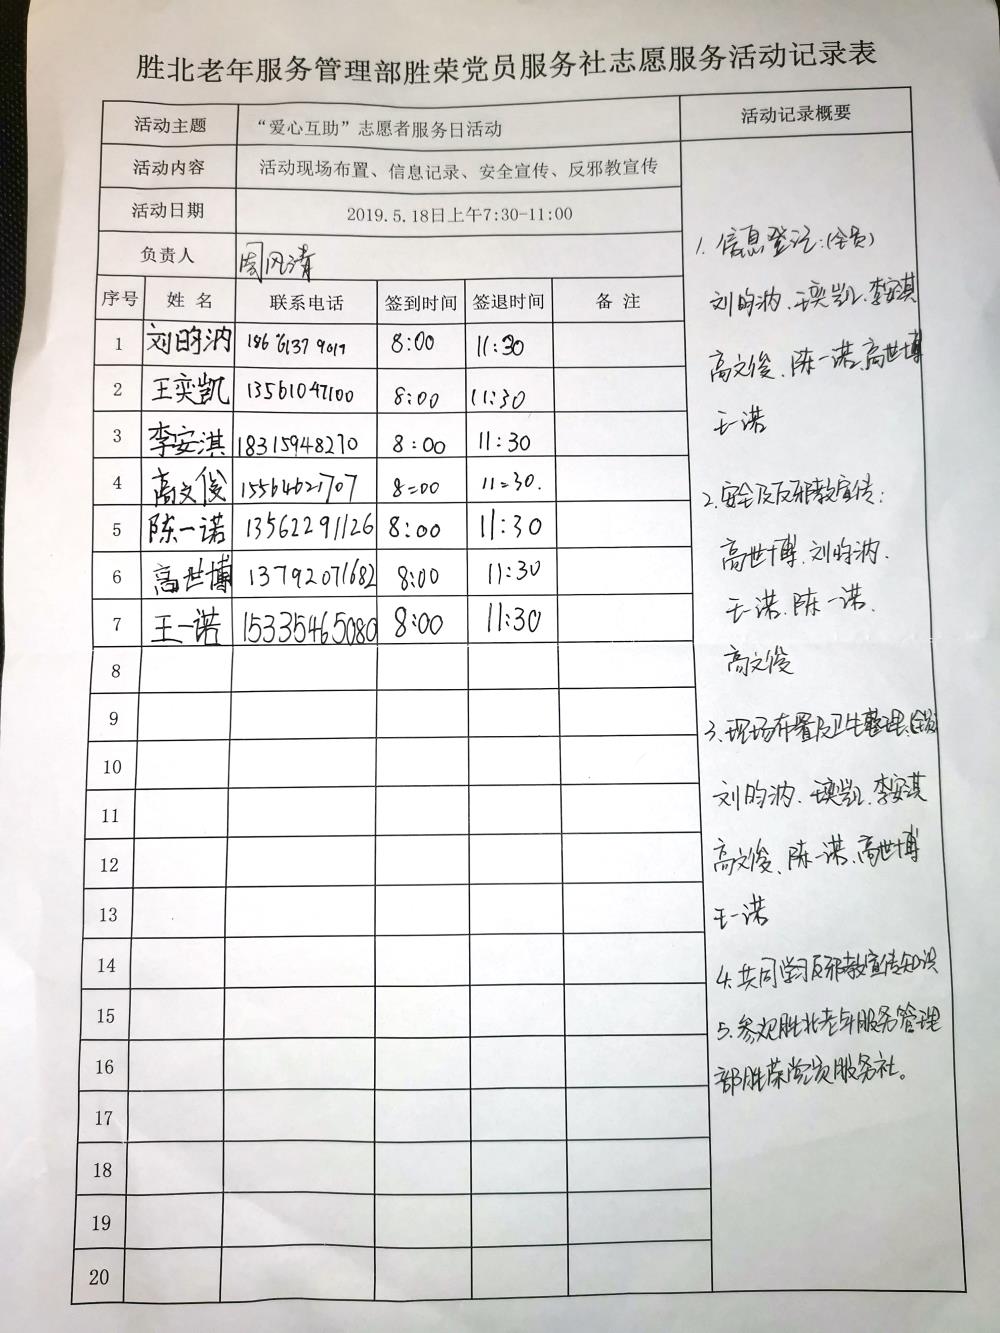 胜北老年服务管理部胜荣党员服务社志愿服务活动记录表
活动主题 “爱心互助”志愿者服务日活动 活动记录概要
活动内容 活动现场布置、信息记录、安全宣传、反邪教宣传
活动日期 2019.5.18日上午7:30-11:00
负责人 周风清
序号 姓名 联系电话 签到时间 签退时间 备注
1 刘昀汭 8:00 11:30
2 王奕凯 13561047100 8:00 11:30
3 李安淇 18315948270 8:00 11:30
4 高文俊 15564621707 8:00 11:30.
5 陈一诺 13562291126 8:00 11:30
6 高世博 13792071682 8:00 11:30
7 王一诺 15335465080 8:00 11:30
8
9
10
11
12
13
14
15
16
17
18
19
20
1. 信息登记:(全员)
刘昀汭、王奕凯、李安淇
高文俊、陈一诺、高世博
王一诺
2.安全及反邪教宣传:
高世博、刘昀汭、
王一诺、陈一诺、
高文俊
3.现场布置及卫生整理、(全员)
刘昀汭、王奕凯、李安淇
高文俊、陈一诺、高世博
王一诺
4.共同学习反邪教宣传知识
5.参观胜北老年服务管理
部胜荣党员服务社。